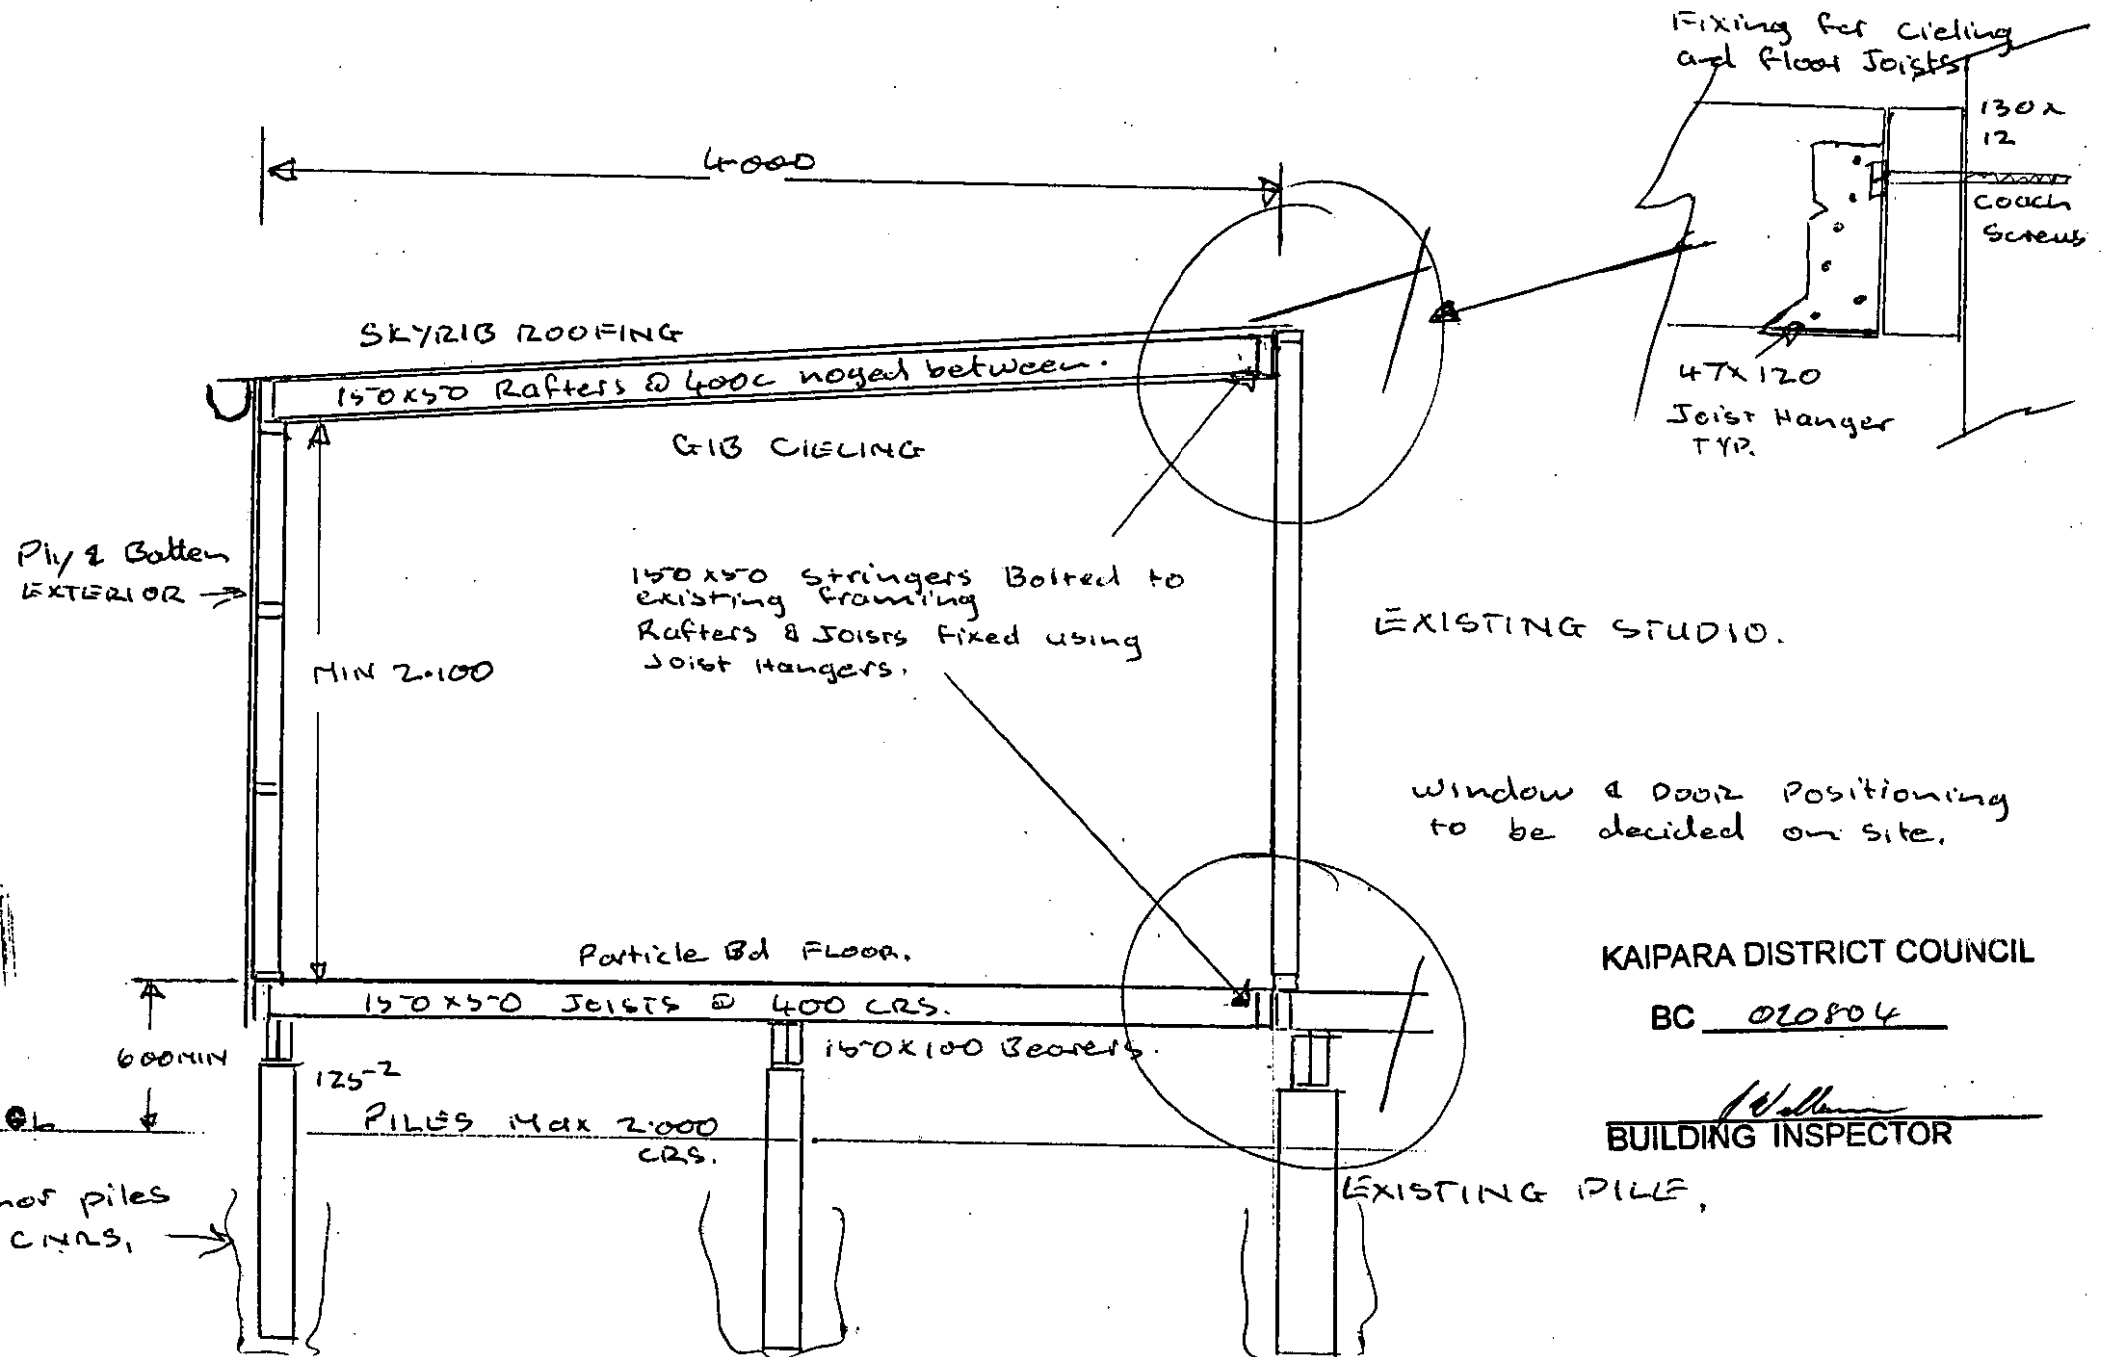 Fixing for Cieling
and floor Joists
130x
12
coach
Screws
47x120
Joist Hanger
TYP.
4000
SKYRIB ROOFING
150x50 Rafters @ 400c noged between.
GIB CIELING
Ply & Batten
EXTERIOR
MIN 2.100
150x50 stringers Bolted to
existing framing
Rafters & Joists fixed using
Joist Hangers.
EXISTING STUDIO.
Window & Door Positioning
to be decided on site.
Particle Bd FLOOR.
150x50 JOISTS @ 400 CRS.
600MIN
150x100 Bearers.
125-2
PILES Max 2.000
CRS.
nor piles
CNRS,
EXISTING PILE,
KAIPARA DISTRICT COUNCIL
BC 020804
BUILDING INSPECTOR